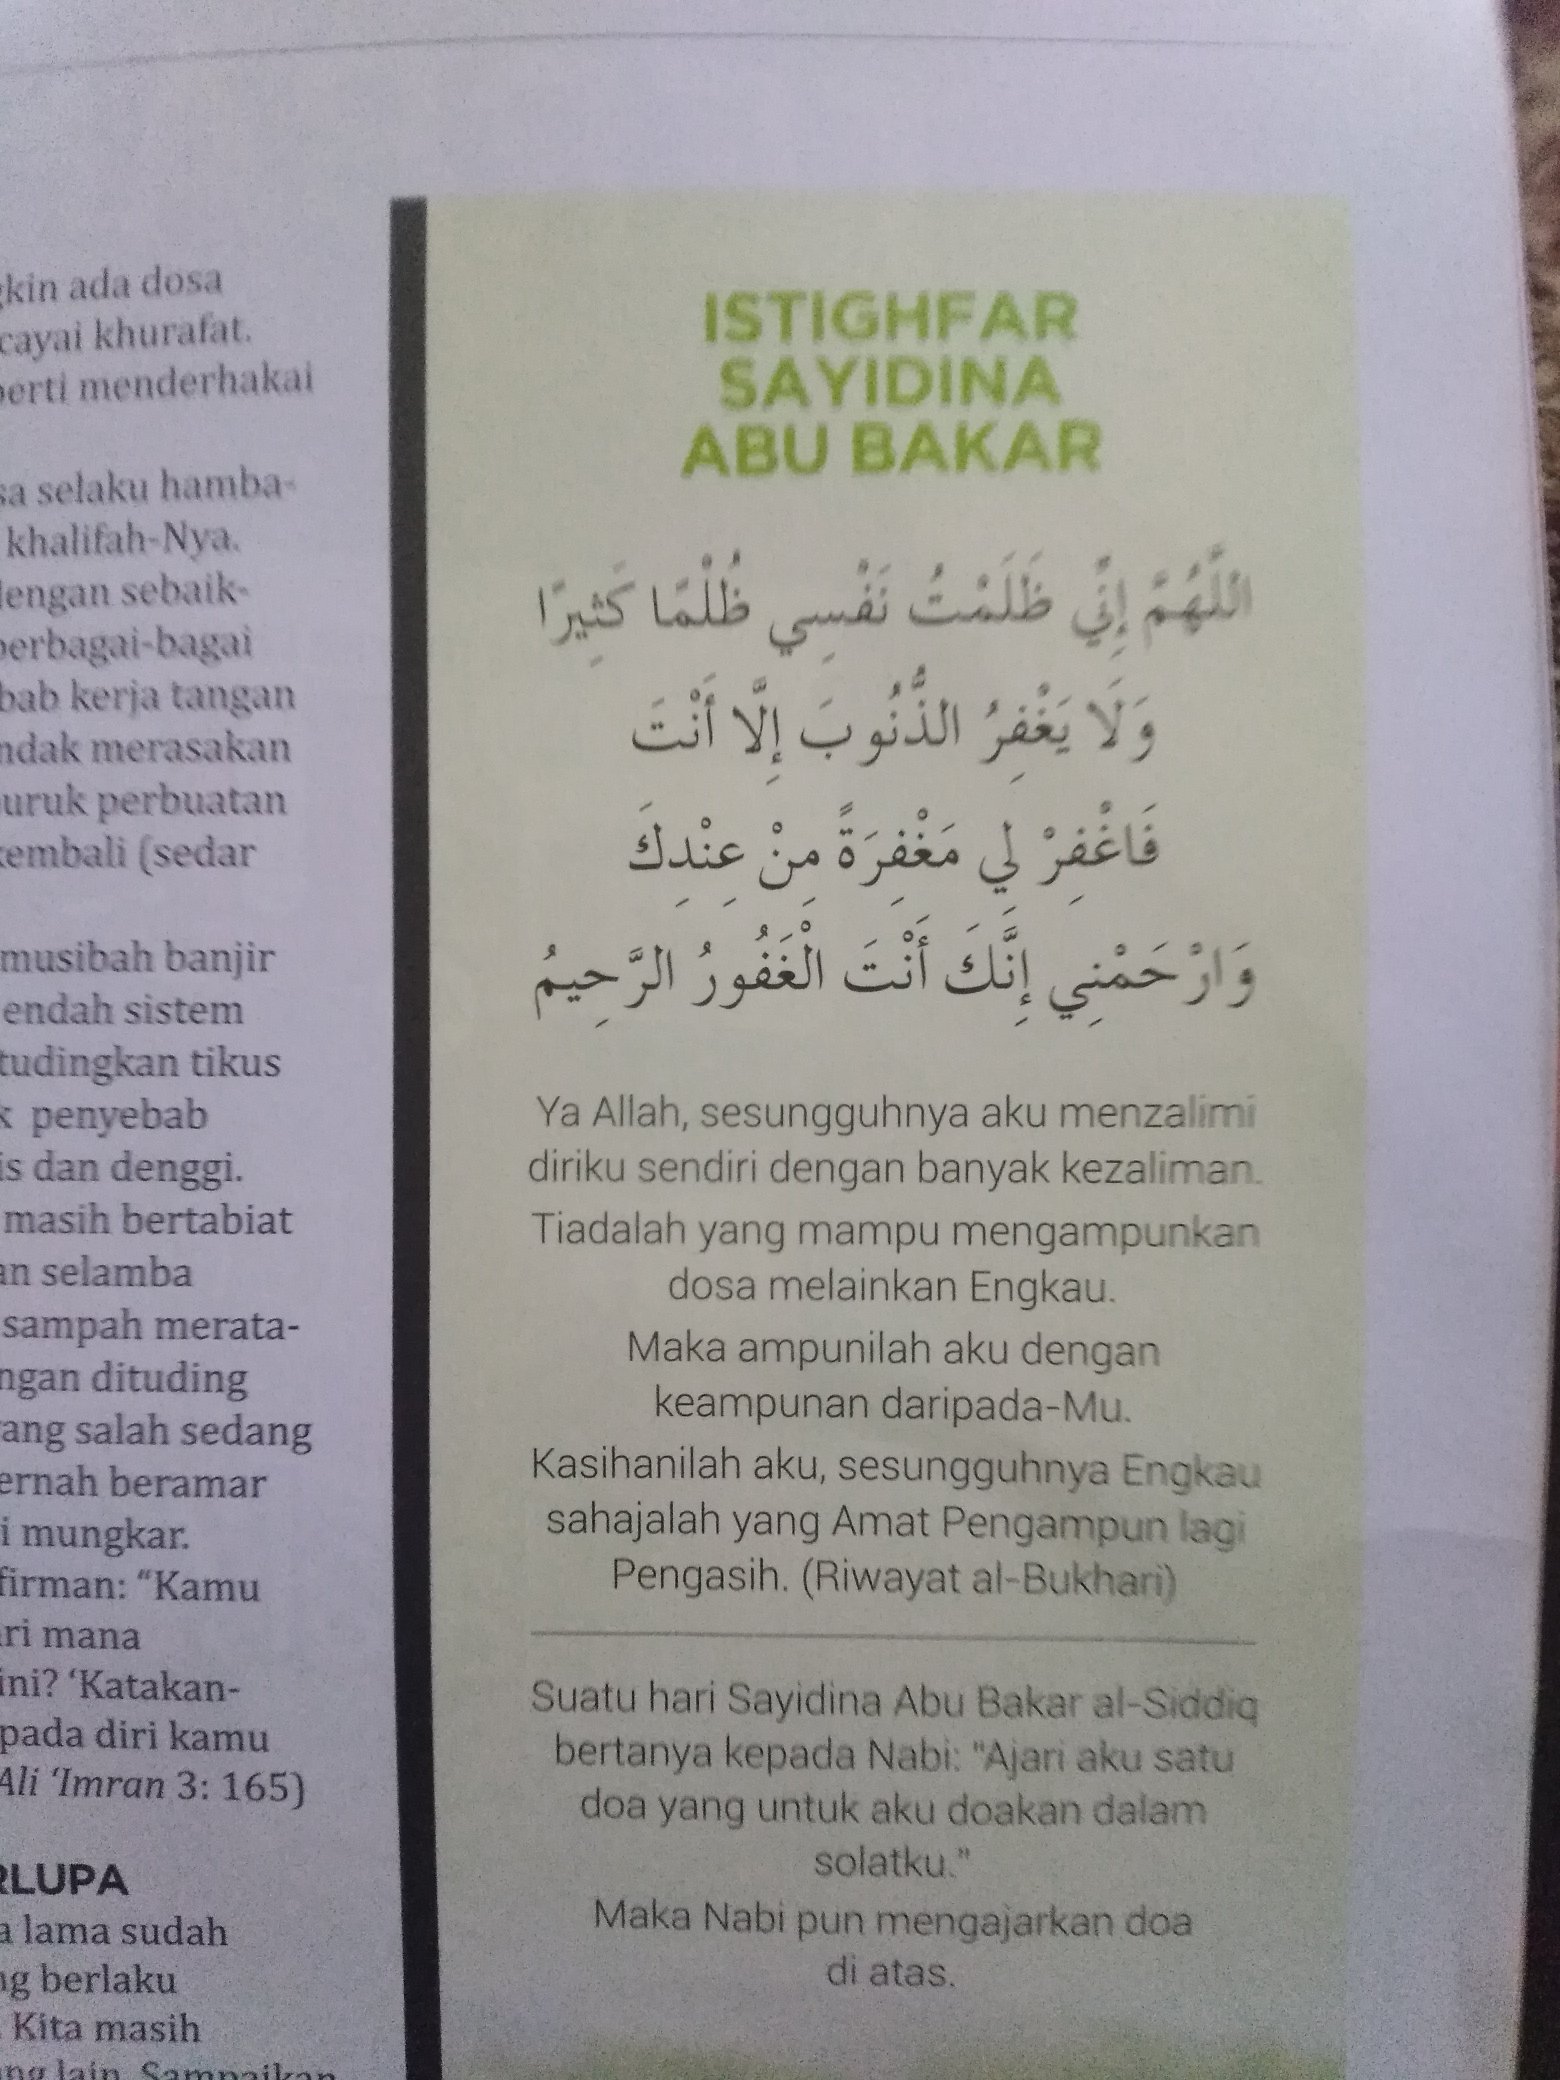 kin ada dosa
cayai khurafat.
menderhakai
selaku hamba-
khalifah-Nya.
dengan sebaik-
berbagai-bagai
kerja tangan
merasakan
perbuatan
kembali (sedar
musibah banjir
endah sistem
tudingkan tikus
penyebab
dan denggi.
masih bertabiat
selamba
sampah merata-
dituding
salah sedang
beramar
mungkar.
firman: “Kamu
mana
ini? ‘Katakan-
pada diri kamu
Ali ‘Imran 3: 165)
RLUPA
lama sudah
berlaku
Kita masih
lain. Sampaikan
ISTIGHFAR
SAYIDINA
ABU BAKAR
اللَّهُمَّ إِنِّي ظَلَمْتُ نَفْسِي ظُلْمًا كَثِيرًا
وَلَا يَغْفِرُ الذُّنُوبَ إِلَّا أَنْتَ
فَاغْفِرْ لِي مَغْفِرَةً مِنْ عِنْدِكَ
وَارْحَمْنِي إِنَّكَ أَنْتَ الْغَفُورُ الرَّحِيمُ
Ya Allah, sesungguhnya aku menzalimi
diriku sendiri dengan banyak kezaliman.
Tiadalah yang mampu mengampunkan
dosa melainkan Engkau.
Maka ampunilah aku dengan
keampunan daripada-Mu.
Kasihanilah aku, sesungguhnya Engkau
sahajalah yang Amat Pengampun lagi
Pengasih. (Riwayat al-Bukhari)
Suatu hari Sayidina Abu Bakar al-Siddiq
bertanya kepada Nabi: "Ajari aku satu
doa yang untuk aku doakan dalam
solatku."
Maka Nabi pun mengajarkan doa
di atas.